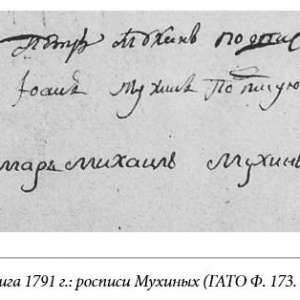 Петръ Мꙋхинъ
Іоанъ Мухинъ
маръ Михаилъ Мухинъ
ига 1791 г.: росписи Мухиных (ГАТО Ф. 173.